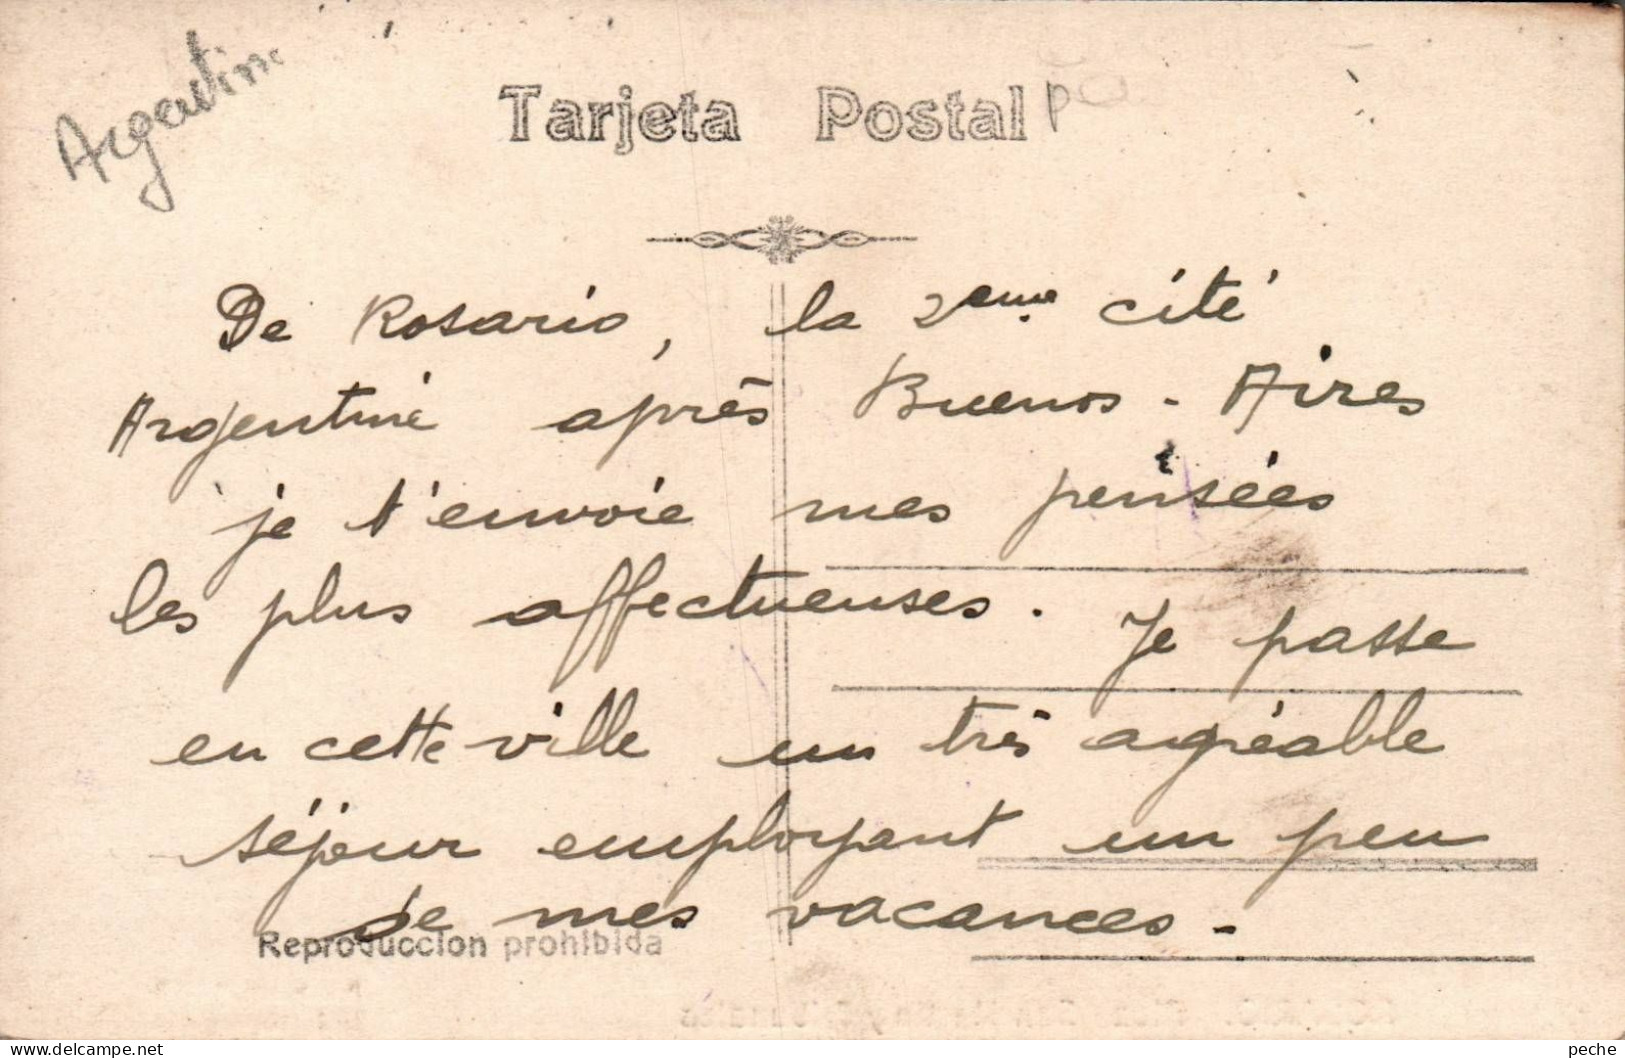 Argentine
Tarjeta Postal
De Rosario, la 2eme cité
Argentine après Buenos-Aires
je t'envoie mes pensées
les plus affectueuses. Je passe
en cette ville un très agréable
séjour employant un peu
de mes vacances.
Reproduccion prohibida
peche